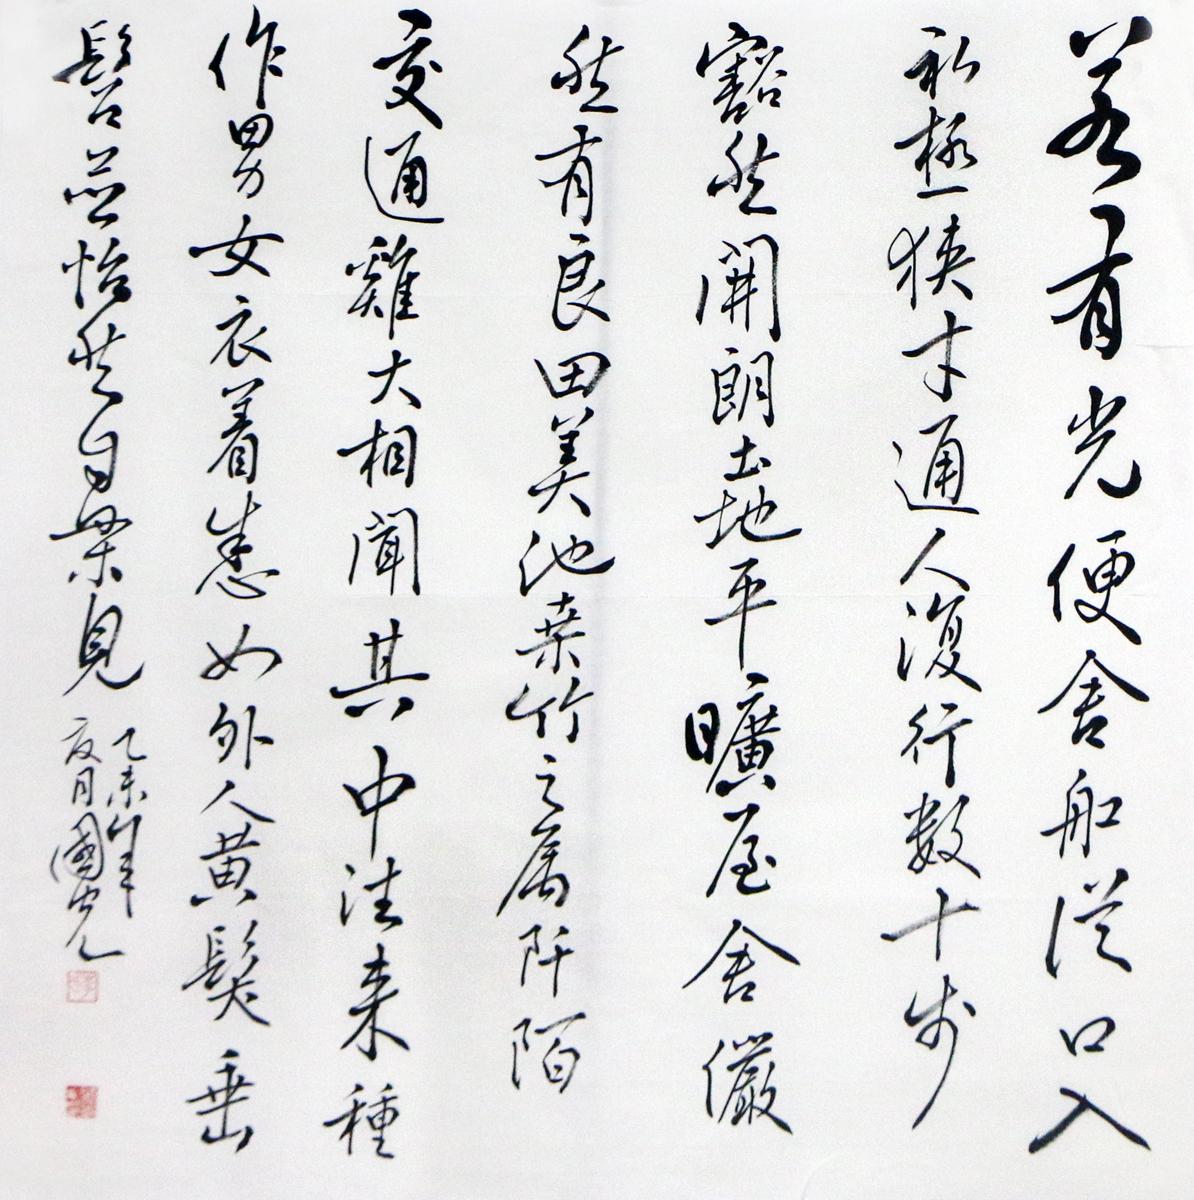 若有光便舍船從口入
初極狹才通人復行数十步
豁然開朗土地平曠屋舍儼
然有良田美池桑竹之属阡陌
交通雞大相聞其中往来種
作男女衣着悉如外人黄髮垂
髫並怡然自樂見
乙未年
夏月國